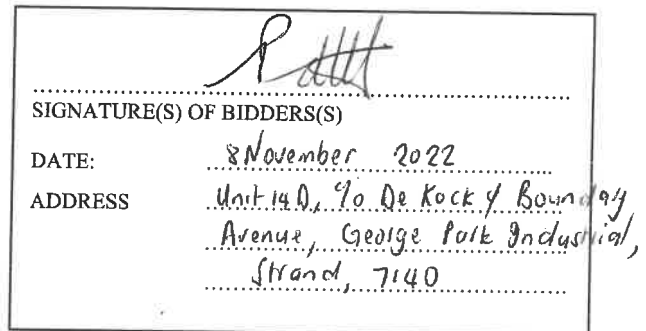 SIGNATURE(S) OF BIDDERS(S)
DATE: 8 November 2022
ADDRESS Unit 14D, c/o De Kock & Boundary
Avenue, George Park Industrial,
Strand, 7140